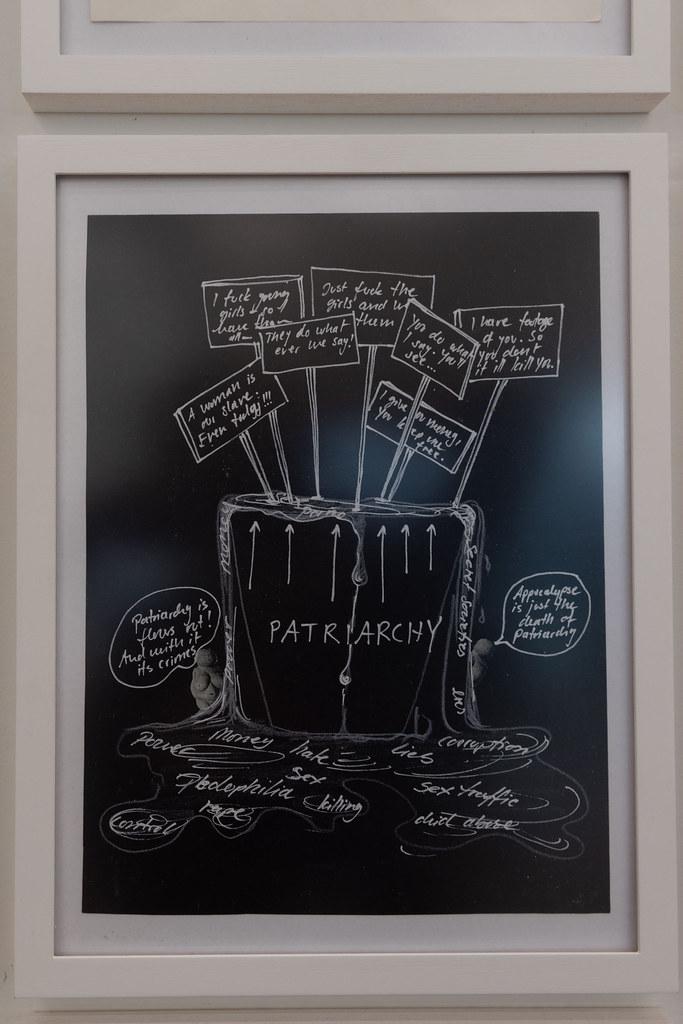 I fuck young
girls & so I
have them
all
Just fuck the
girls and
them
They do what
ever we say!
You do what
I say. You'll
see...
I have footage
of you. So
you don't
I'll kill you.
A woman is
our slave.
Even today!!!
I give you money,
You keep me
free.
Secret
PATRIARCHY
Patriarchy is
out!
And with it
its crimes
Appocalypse
is just the
death of
Patriarchy
Power Money hate lies corruption
sex
Pedophilia sex traffic
rape killing
control child abuse